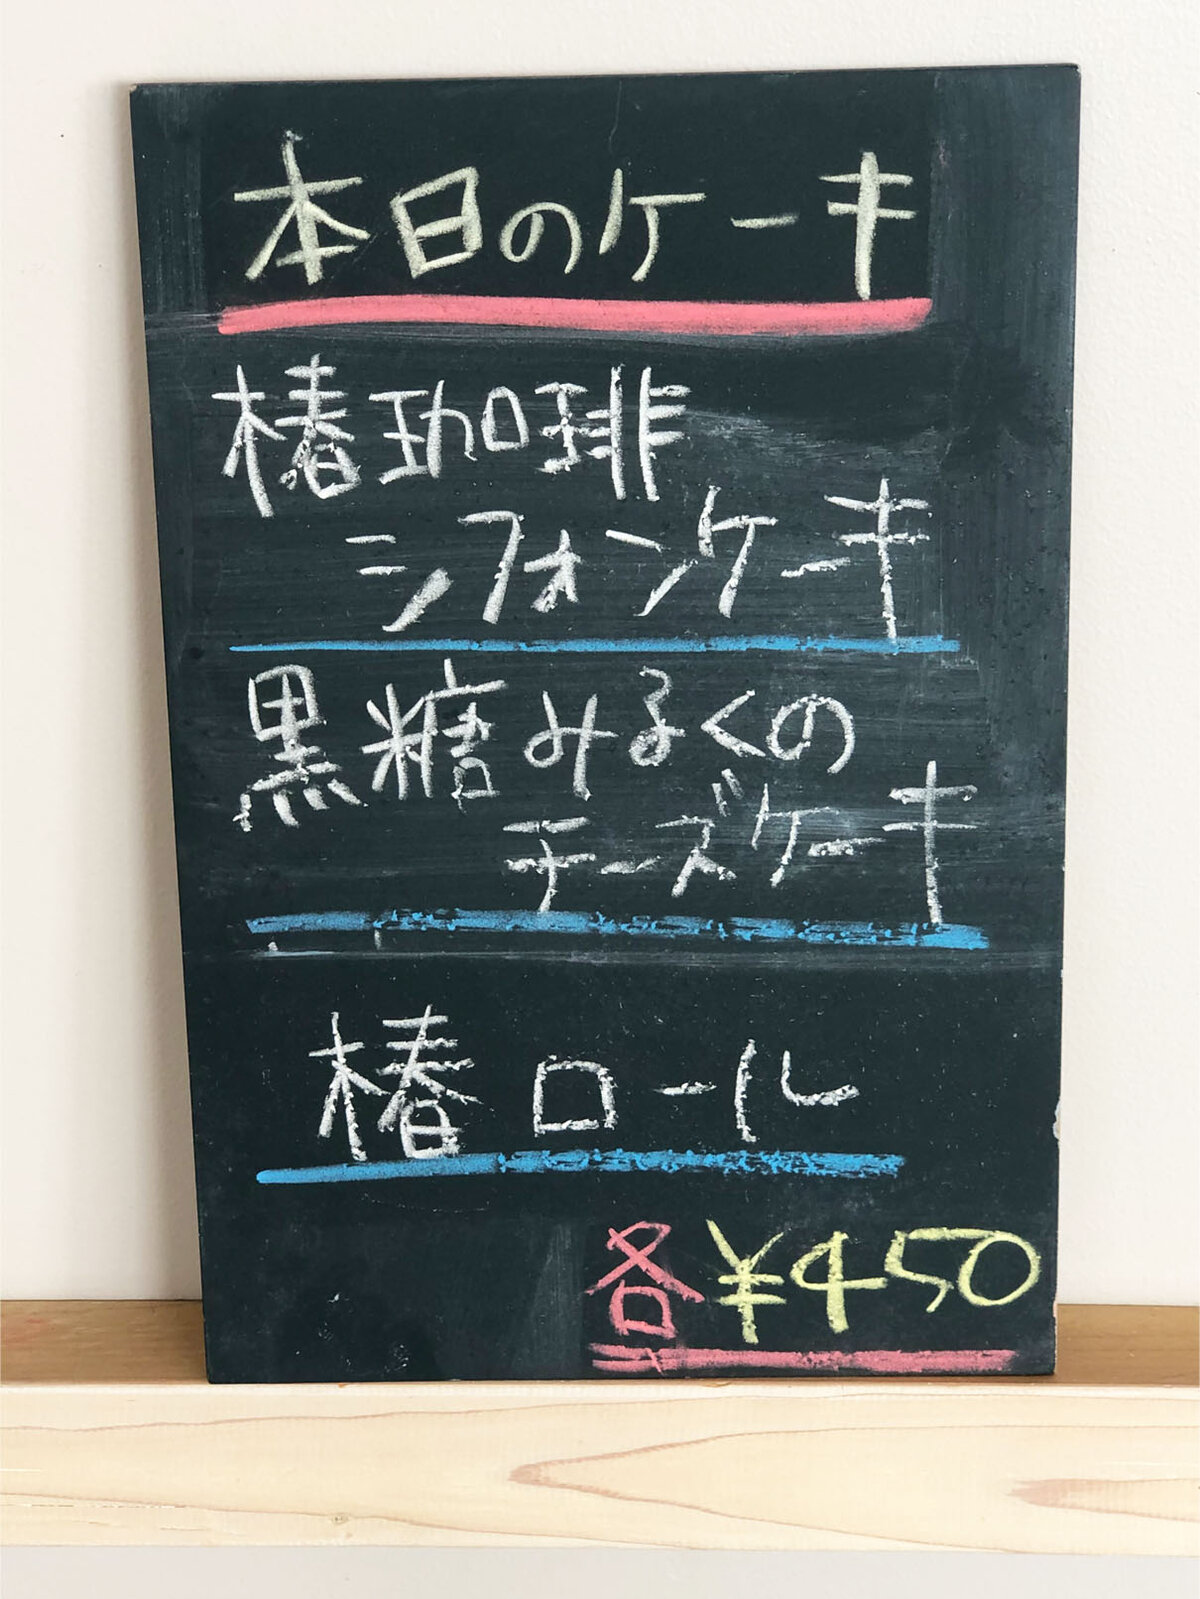 本日のケーキ
椿珈琲
シフォンケーキ
黒糖みるくの
チーズケーキ
椿ロール
各¥450